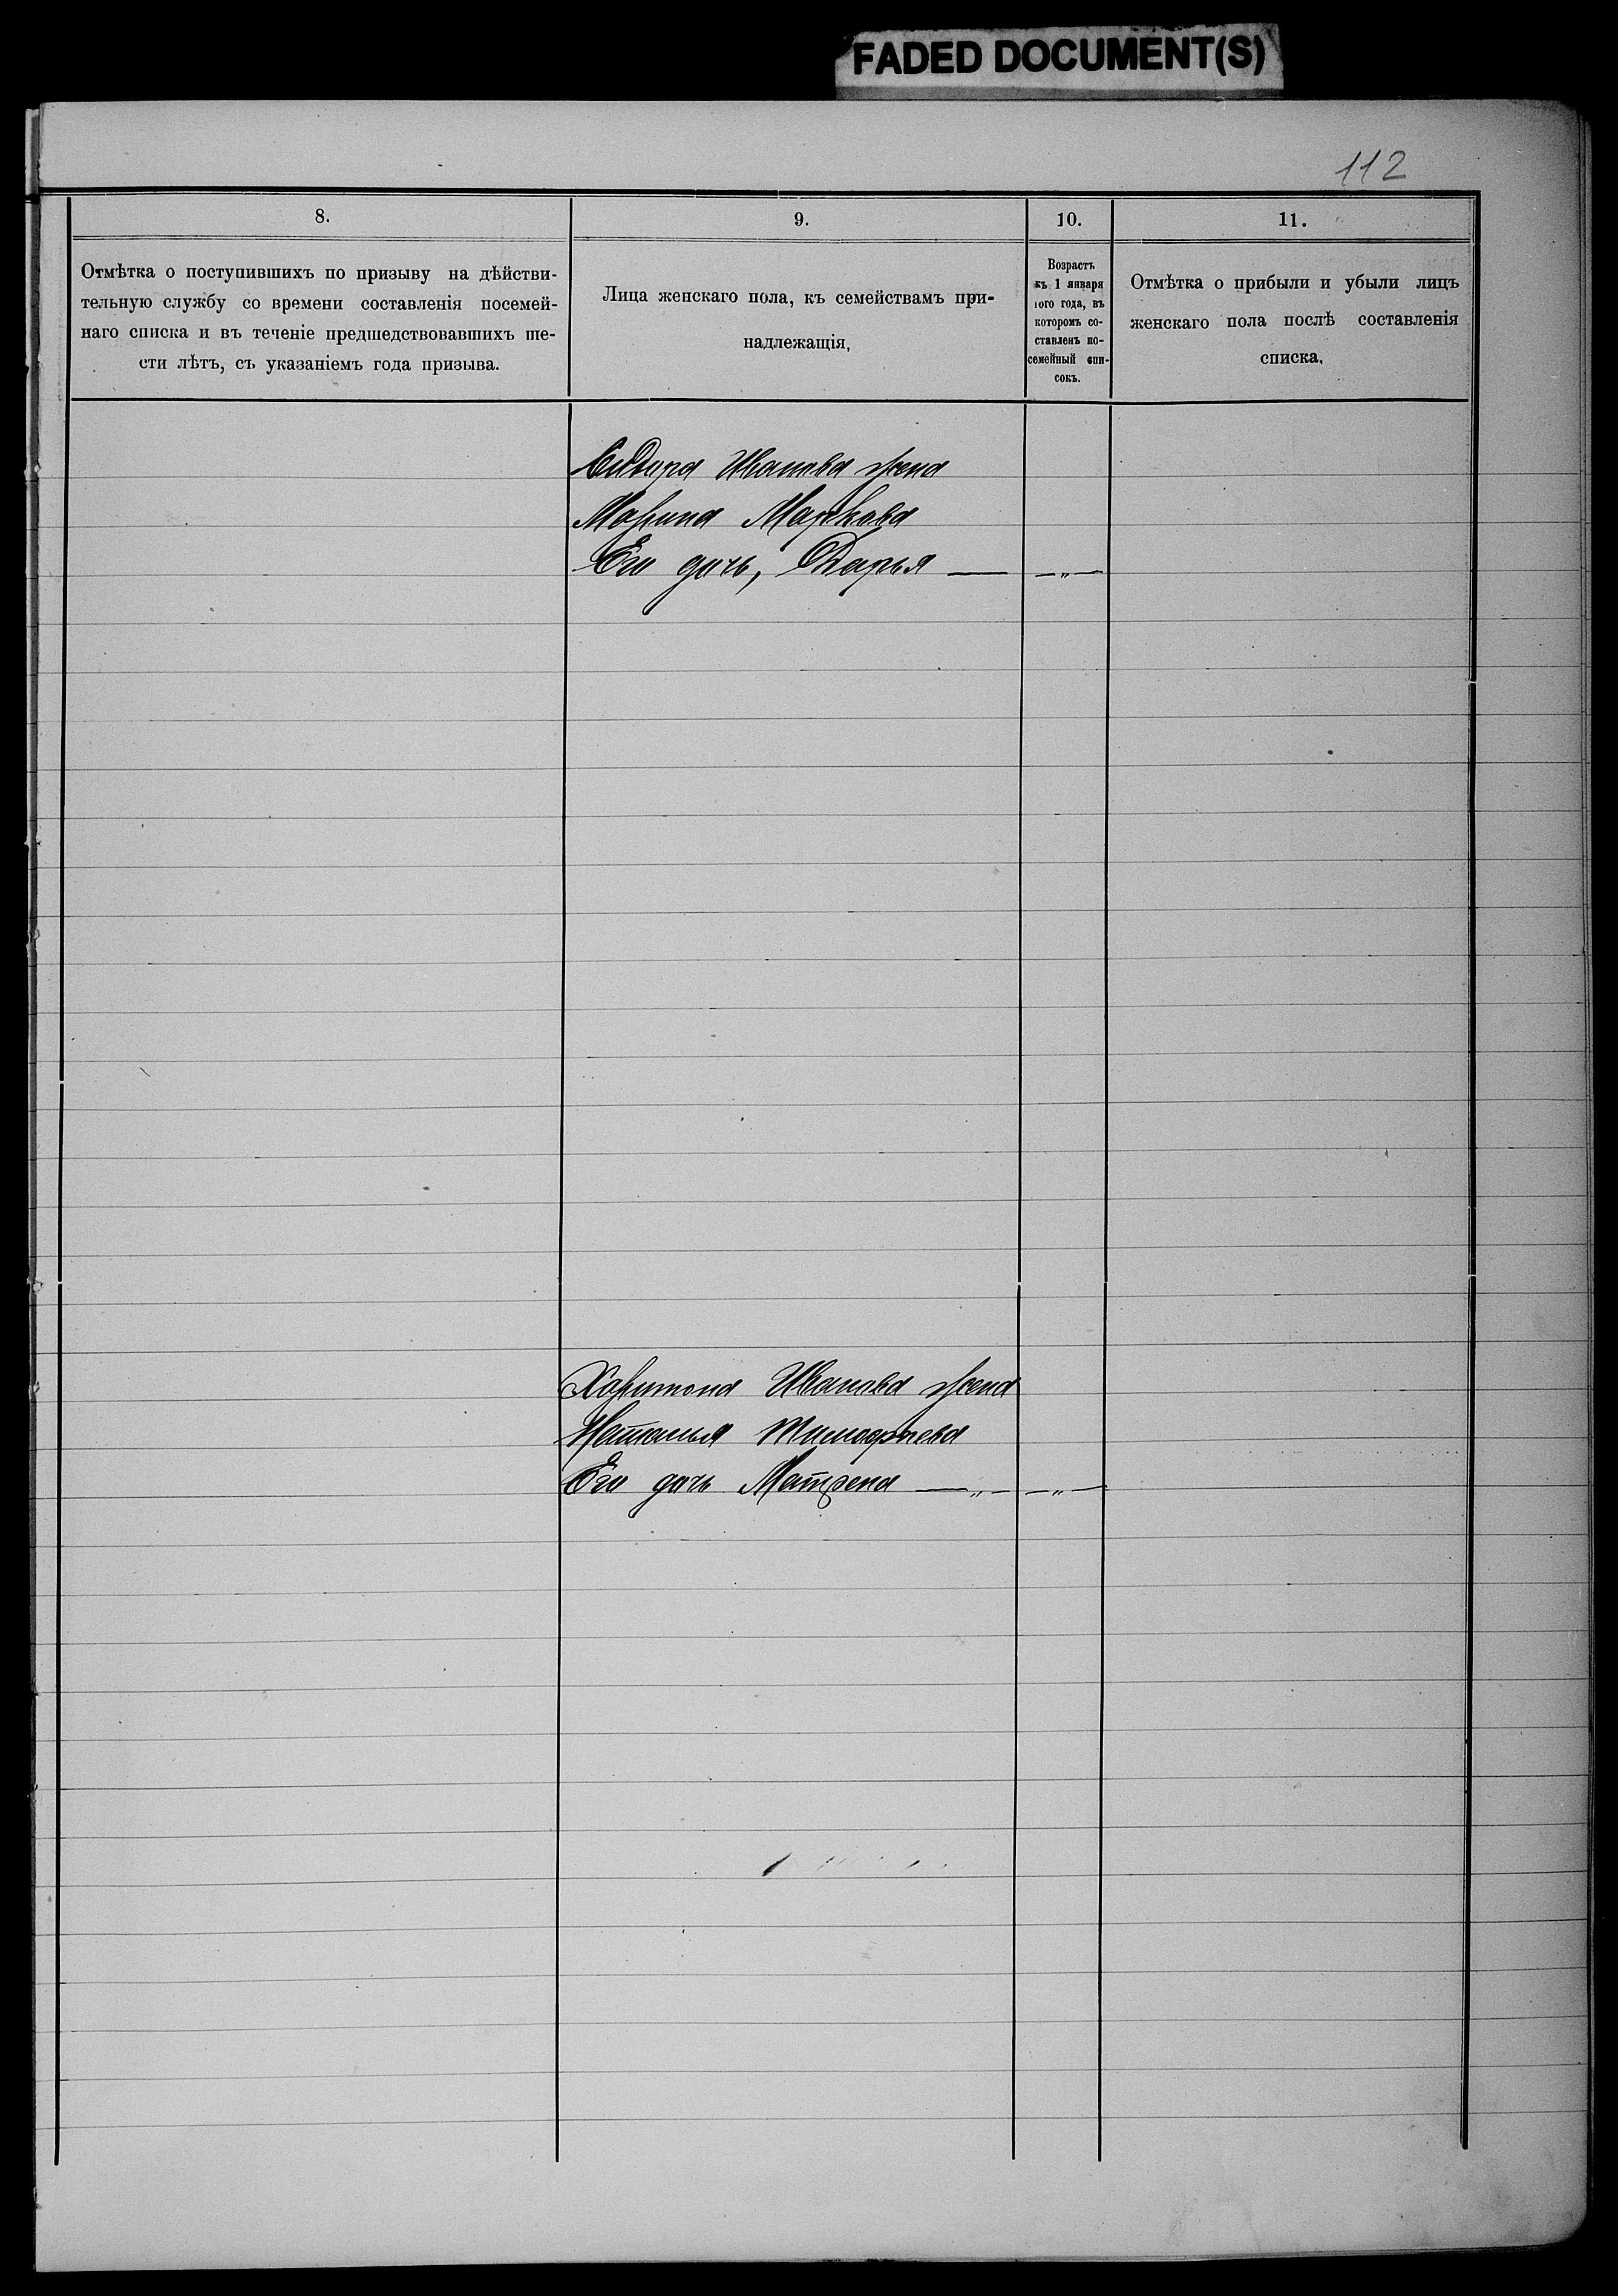 FADED DOCUMENT(S)
112
8.
9.
10.
11.
Отмѣтка о поступившихъ по призыву на дѣйстви-
тельную службу со времени составленія посемей-
наго списка и въ теченіе предшедствовавшихъ ше-
сти лѣтъ, съ указаніемъ года призыва.
Лица женскаго пола, къ семействамъ при-
надлежащія,
Возрастъ
къ 1 января
того года, въ
которомъ со-
ставленъ по-
семейный спи-
сокъ.
Отмѣтка о прибыли и убыли лицъ
женскаго пола послѣ составленія
списка.
Сидора Иванова жена
Марина Маркова
Его дочь, Дарья — —„—
Харитона Иванова жена
Наталья Тимофѣева
Его дочь Матрена —„— —„—